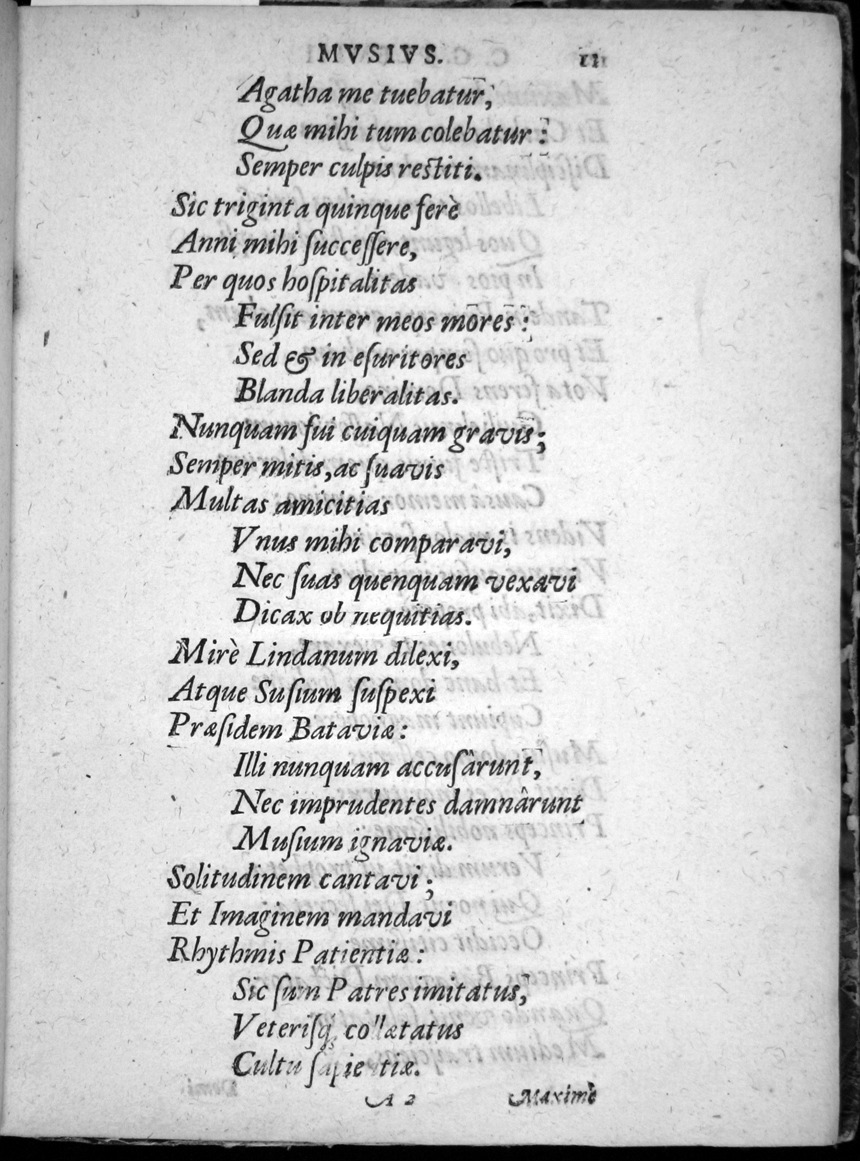 MVSIVS. III
Agatha me tuebatur,
Quæ mihi tum colebatur :
Semper culpis restiti.
Sic triginta quinque ferè
Anni mihi ſucceſſere,
Per quos hoſpitalitas
Fulſit inter meos mores :
Sed & in eſuritores
Blanda liberalitas.
Nunquam fui cuiquam gravis;
Semper mitis, ac ſuavis
Multas amicitias
Vnus mihi comparavi,
Nec ſuas quenquam vexavi
Dicax ob nequitias.
Mirè Lindanum dilexi,
Atque Suſium ſuſpexi
Præſidem Bataviæ :
Illi nunquam accuſârunt,
Nec imprudentes damnârunt
Muſium ignaviæ.
Solitudinem cantavi ;
Et Imaginem mandavi
Rhythmis Patientiæ :
Sic ſum Patres imitatus,
Veteriſq; collætatus
Cultu ſapientiæ.
A 2 Maximè